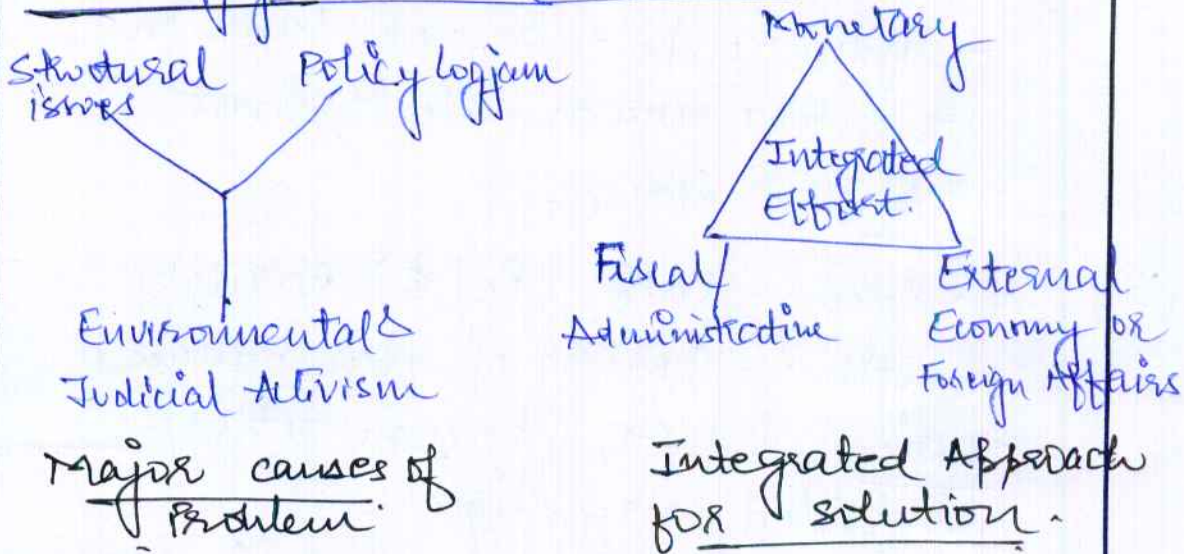 Structural Policy logjam
issues
Environmental &
Judicial Activism
Major causes of
Problem.
Monetary
Integrated
Effort.
Fiscal/
Administrative
External
Economy or
Foreign Affairs
Integrated Approach
for solution.